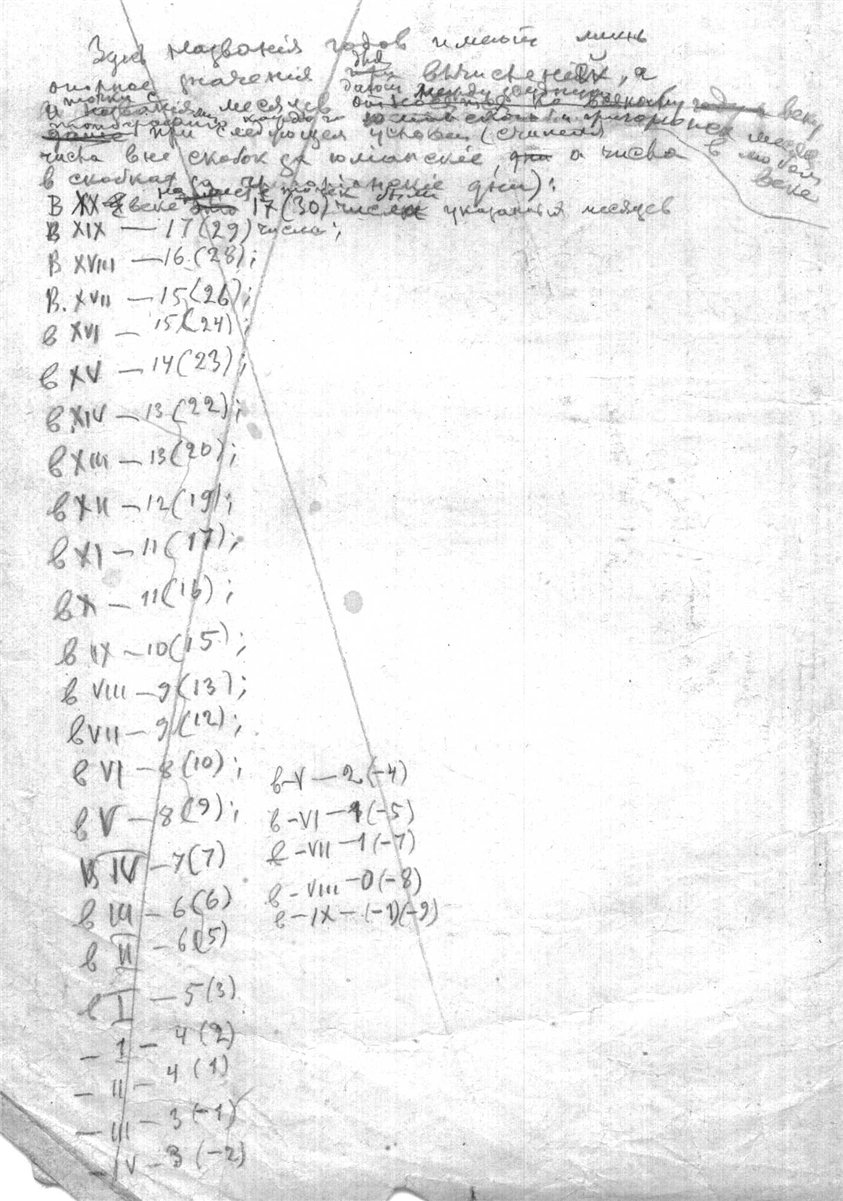 Здесь названия годов имеют лишь
опорное значения для вычислений, а
названия месяцев
при следующем условии (считая
числа вне скобок за юлианские, а числа в любом
в скобках за григорианские дни): веке
В XX веке 17 (30) числа указанных месяцев
В XIX — 17 (29) числа;
В XVIII — 16 (28);
В. XVII — 15 (26);
в XVI — 15 (24);
в XV — 14 (23);
в XIV — 13 (22);
в XIII — 13 (20);
в XII — 12 (19);
в XI — 11 (17);
в X — 11 (16);
в IX — 10 (15);
в VIII — 9 (13);
в VII — 9 (12);
в VI — 8 (10);
в V — 8 (9);
в IV — 7 (7)
в III — 6 (6)
в II — 6 (5)
в I — 5 (3)
— I — 4 (2)
— II — 4 (1)
— III — 3 (-1)
— IV — 3 (-2)
в -V — 2 (-4)
в -VI — 1 (-5)
в -VII — 1 (-7)
в -VIII — 0 (-8)
в -IX — (-1) (-9)